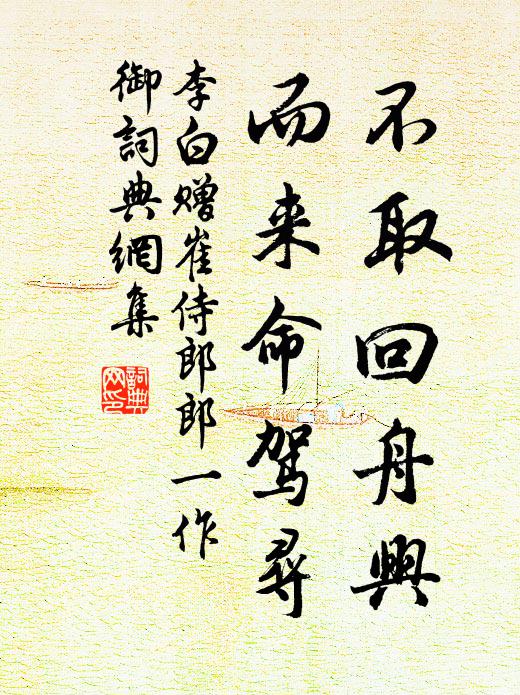 不取回舟興
而来命駕尋
李白赠崔侍郎郎一作
御詞典網集
詞典
网印